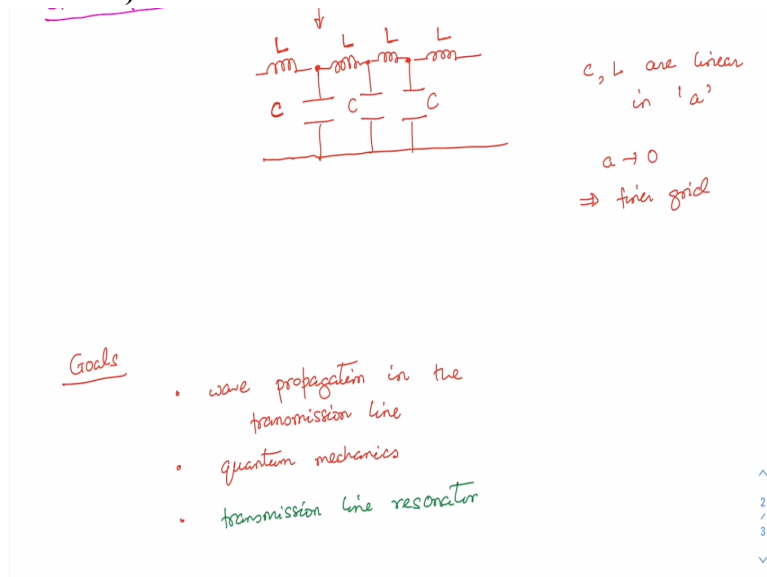 L L L L
C C C
C, L are linear
in 'a'
a → 0
⇒ finer grid
Goals
• wave propagation in the
transmission line
• quantum mechanics
• transmission line resonator
2
/
3